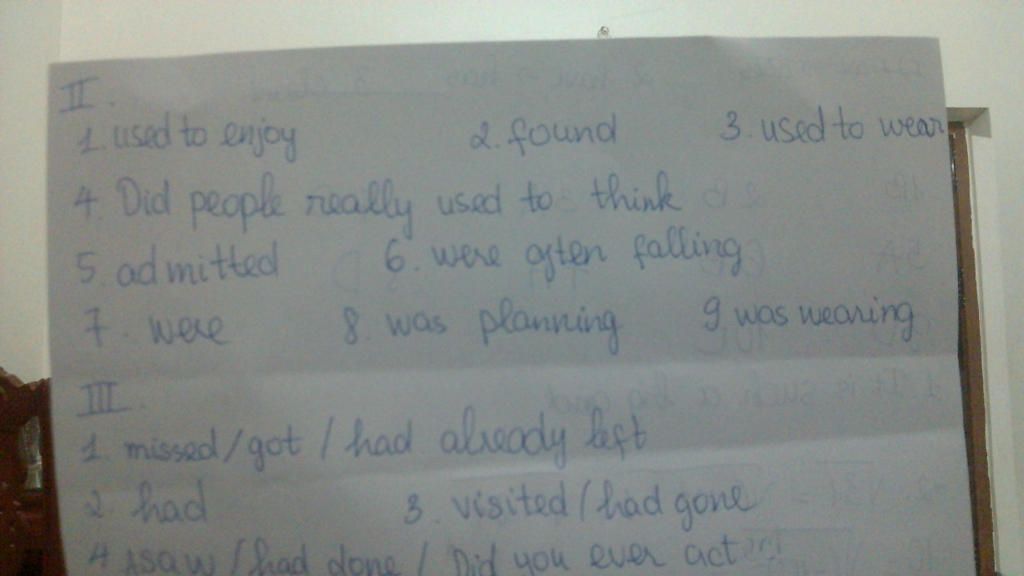 II.
1. used to enjoy 2. found 3. used to wear
4. Did people really used to think
5. admitted 6. were often falling
7. were 8. was planning 9 was wearing
III.
1. missed/got / had already left
2. had 3. visited/had gone
4 saw / had done / Did you ever act